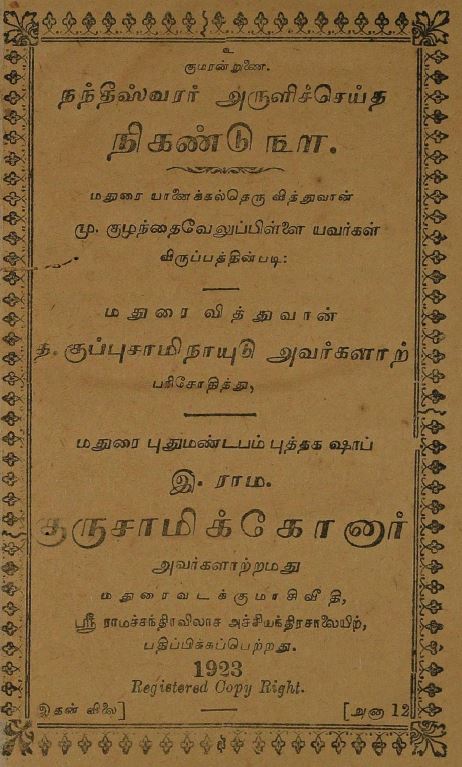 உ
குமரன்றுணை.
நந்தீஸ்வரர் அருளிச்செய்த
நிகண்டு ௩௱.
மதுரை யானைக்கல்தெரு வித்துவான்
மு. குழந்தைவேலுப்பிள்ளை யவர்கள்
விருப்பத்தின்படி:
மதுரை வித்துவான்
த. குப்புசாமிநாயுடு அவர்களாற்
பரிசோதித்து,
மதுரை புதுமண்டபம் புத்தக ஷாப்
இ. ராம.
குருசாமிக்கோனார்
அவர்களாற்றமது
மதுரைவடக்குமாசிவீதி,
ஸ்ரீ ராமச்சந்திரவிலாச அச்சியந்திரசாலையிற்,
பதிப்பிக்கப்பெற்றது.
1923
Registered Copy Right.
இதன் விலை] [அணா 12